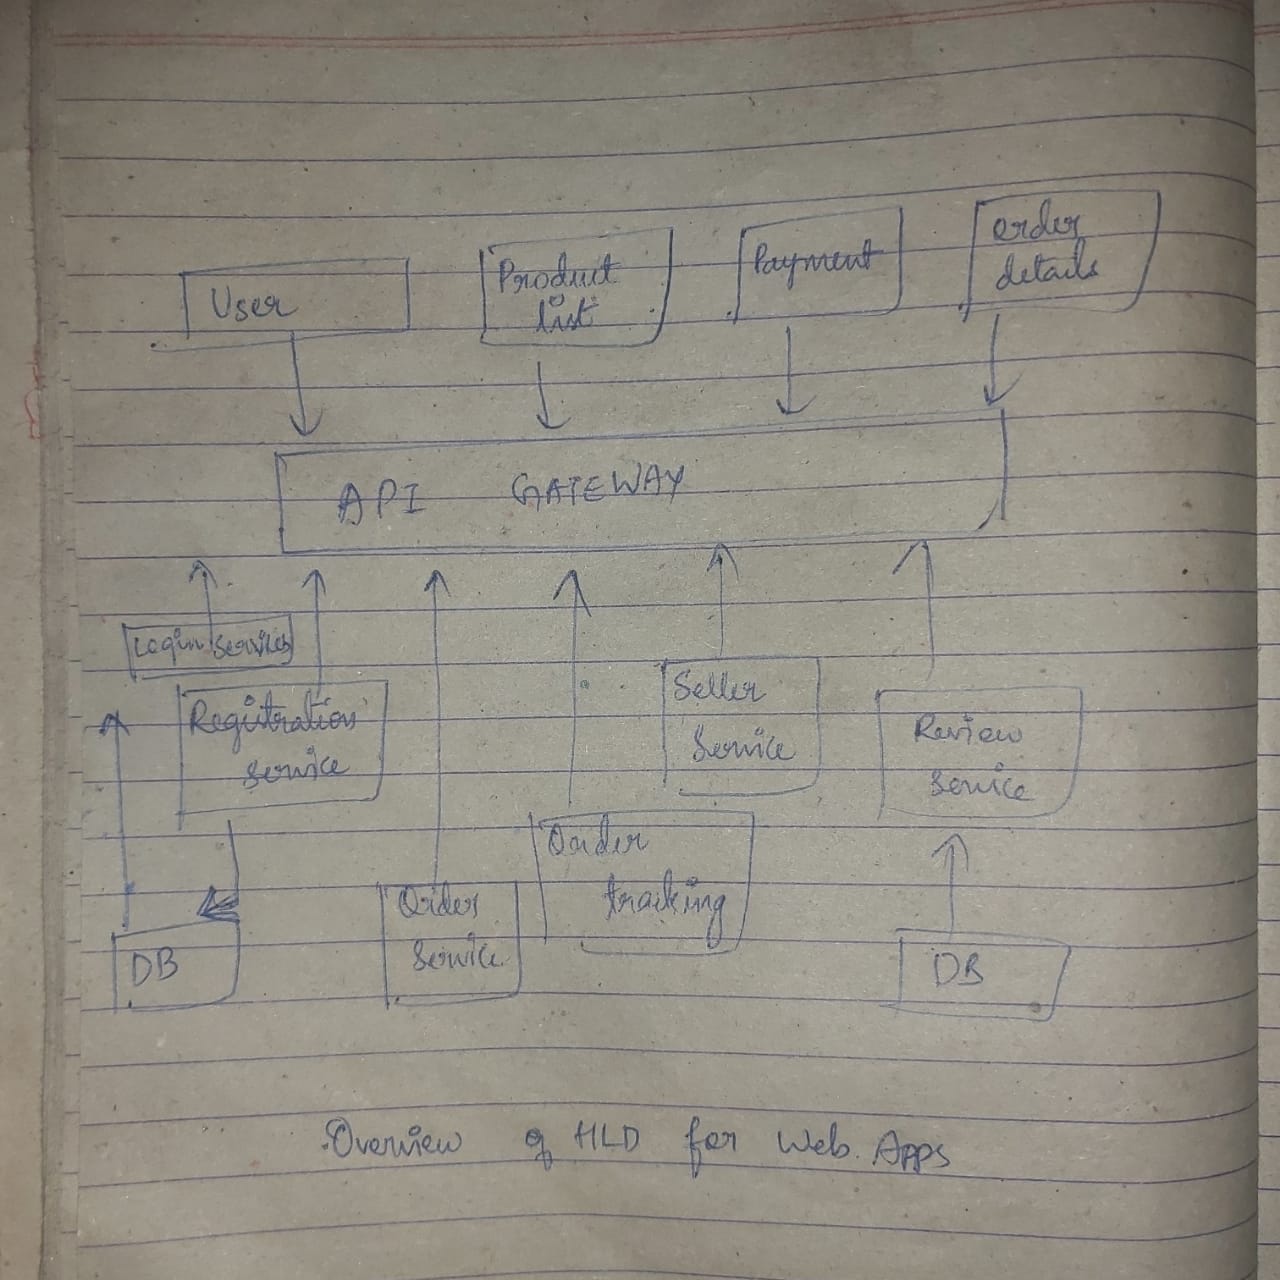 User
Product
list
Payment
order
details
API GATEWAY
Login Services
Registration
service
Seller
Service
Review
Service
Order
tracking
Order
Service
DB
DB
Overview of HLD for Web Apps